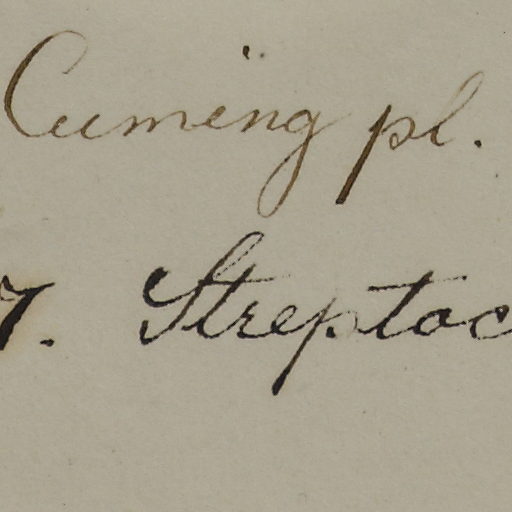 Cuming pl.
7. Streptoc